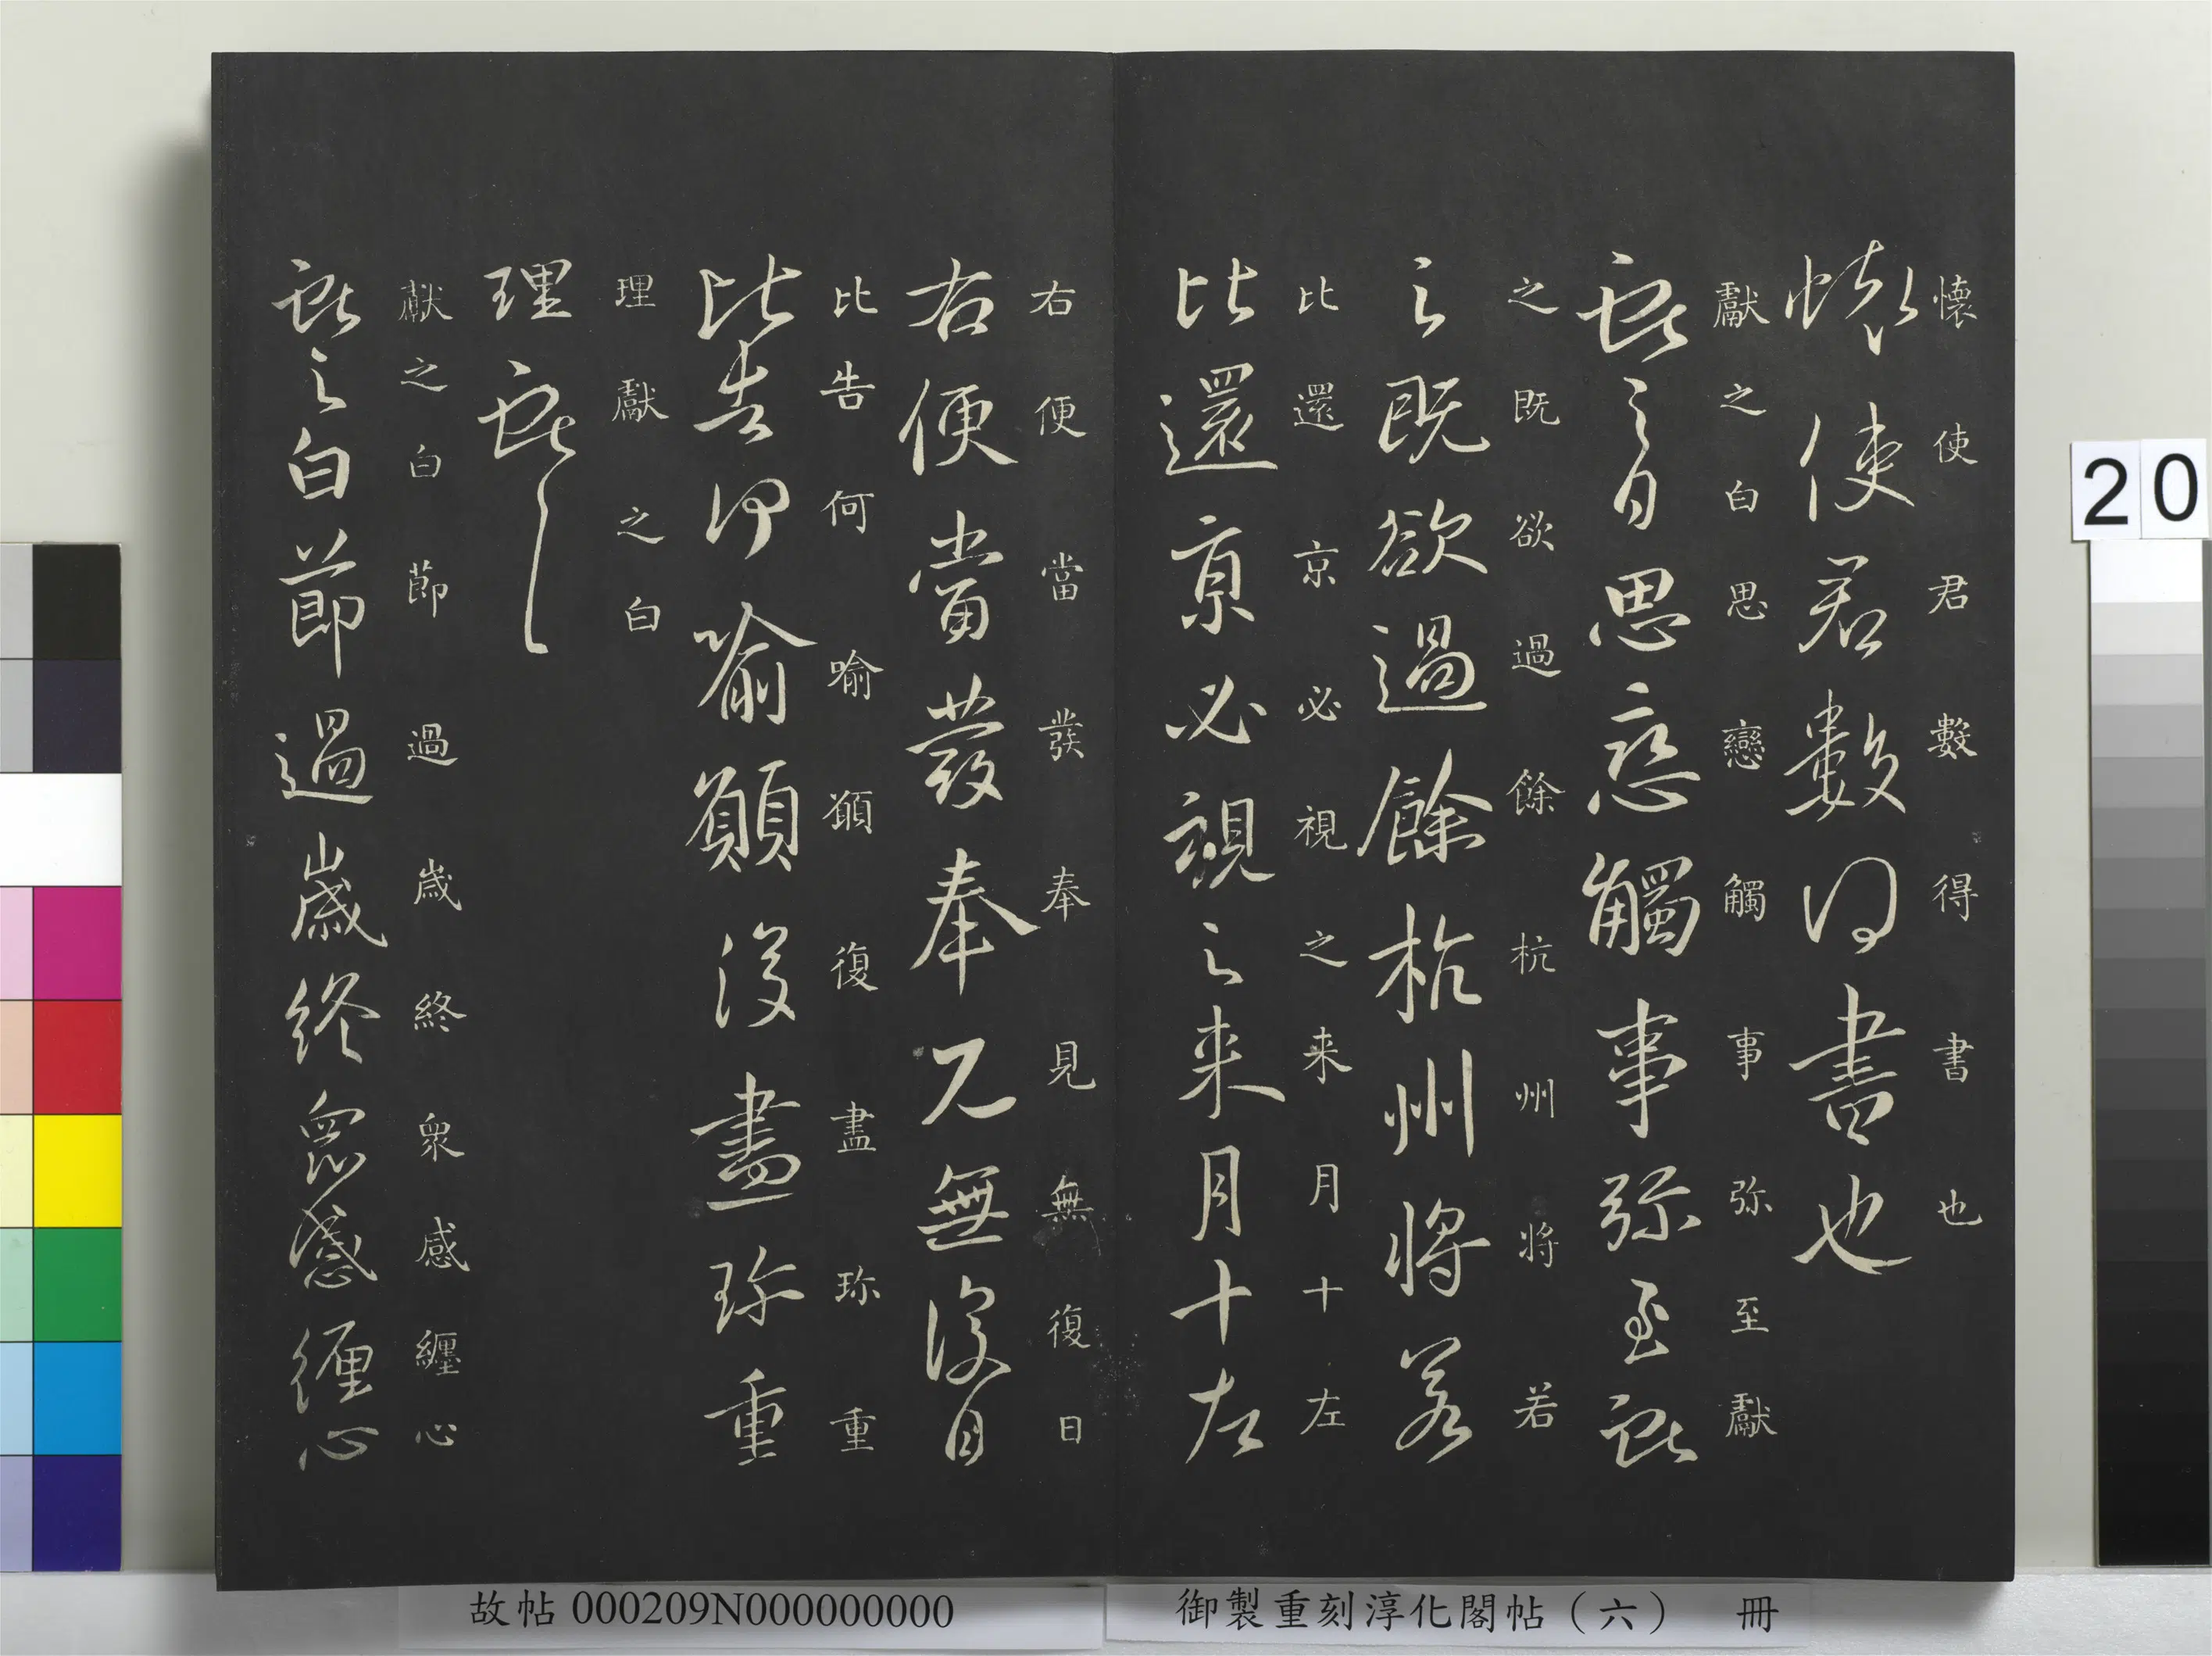 懷使君數得書也
懷使君數得書也
獻之白思戀觸事弥至獻
獻之白思戀觸事弥至獻
之既欲過餘杭州將若
之既欲過餘杭州將若
比還京必視之来月十左
比還京必視之来月十左
右便當發奉見無復日
右便當發奉見無復日
比告何喻顧復盡珎重
比告何喻顧復盡珎重
理獻之白
理獻之白
獻之白節過歲終衆感纏心
獻之白節過歲終衆感纏心
20
故帖 000209N000000000
御製重刻淳化閣帖（六） 冊